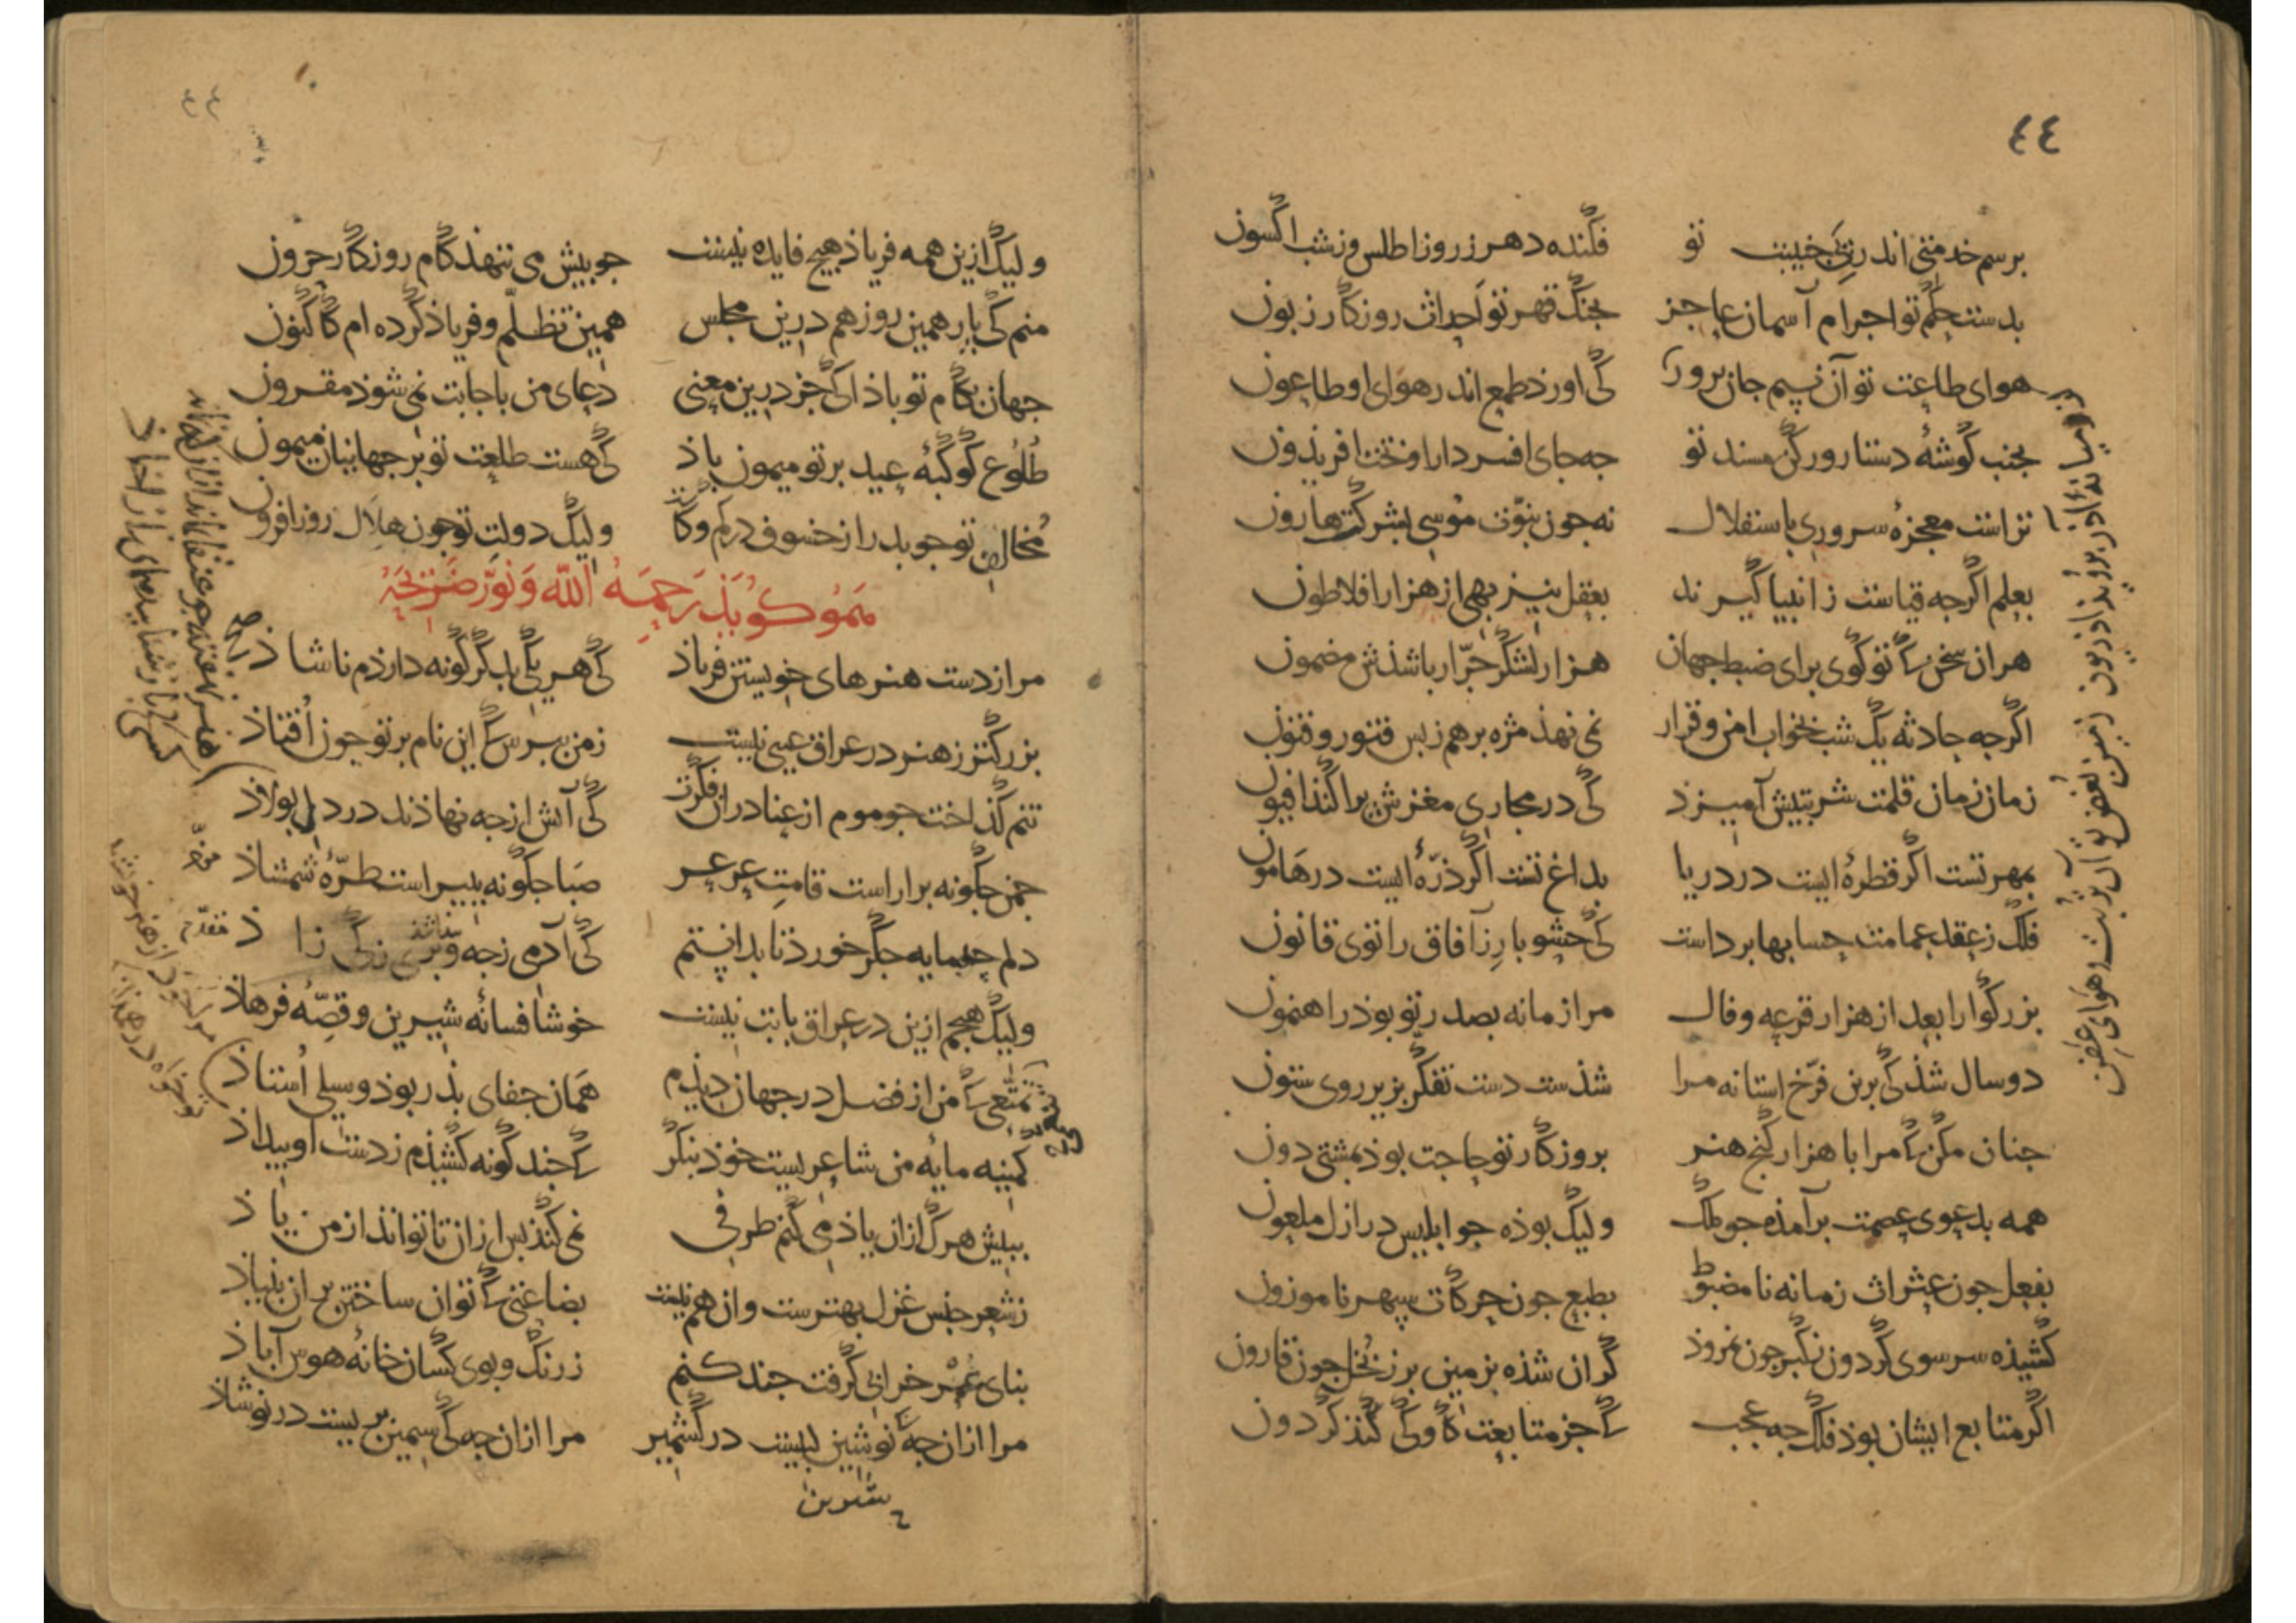 ٤٤
برسم خدمتی اندر پی جنیبت تو فکنده دهر ز روز اطلس و ز شب اکسون
بدست حکم تو اجرام آسمان عاجز بجنگ قهر تو احداث روزگار زبون
هوای طاعت تو آن نسیم جان پرور کی اورذ طمع اندر هوای او طاعون
بجنب گوشهٔ دستار و رکن مسند تو چه جای افسر دارا و تخت افریذون
تراست معجزهٔ سروری باستقلال نه چون نبوّت موسی بشرکت هارون
بعلم اگرچه قیاست ز انبیا گیرند بعقل نیز بهی از هزار افلاطون
هر ان سخن که تو گوی برای ضبط جهان هزار لشکر جرّار باشذش مضمون
اگرچه حادثه یک شب بخواب امن و قرار نمی نهذ مژه بر هم ز بس فتور و فتون
زمان زمان قلمت شربتیش آمیزذ کی در مجاری مغزش پراکنذ افیون
بمهر تست اگر قطرهٔ ایست در دریا بداغ تست اگر ذرّهٔ ایست در هامون
فلک ز عقد عمامت حسابها برداست کی حشو بارز آفاق را توی قانون
بزرگوارا بعد از هزار قرعه و فال مرا زمانه بصدر تو بوذ راهنمون
دو سال شذ کی برین فرّخ استانه مرا شذست دست تفکّر بزیر روی ستون
چنان مکن که مرا با هزار گنج هنر بروزگار تو حاجت بوذ بمشتی دون
همه بدعوی عصمت برآمذه چو ملک ولیک بوذه چو ابلیس در ازل ملعون
بفعل چون عثرات زمانه نامضبوط بطبع چون حرکات سپهر ناموزون
کشیذه سر سوی گردون بکبر چون نمروذ گران شذه بزمین بر ز بخل چون قارون
اگر متابع ایشان بوذ فلک چه عجب که جز متابعت گاو کی کنذ گردون
٤٤
ولیک ازین همه فریاذ هیچ فایده نیست چو بیش می ننهذ گام روزگار حرون
منم کی پار همین روز هم درین مجلس همین تظلّم و فریاذ کرده ام کاکنون
جهان بکام تو باذ اکی جز درین معنی دعای من باجابت نمی شوذ مقرون
طلوع کوکبهٔ عید بر تو میمون باذ کی هست طلعت تو بر جهانیان میمون
مخالف تو چو بدر از خسوف در کم و کاست ولیک دولت تو چون هلال روزافزون
هم او گویذ رحمه الله و نوّر ضریحه
مرا ز دست هنرهای خویشتن فریاذ کی هر یکی بدگرگونه داردم ناشاذ
بزرگتر ز هنر در عراق عیبی نیست ز من مپرس که این نام بر تو چون افتاذ
تنم گذاخت چو موم از عنا در ان فکرت کی آتش از چه نهاذند در دل پولاذ
چمن چگونه براراست قامت عرعر صبا چگونه بپیراست طرّه شمشاذ
دلم چه مایه جگر خورد تا بدانستم کی آدمی ز چه و پری ز کی زاذ
ولیک هیچم ازین در عراق بابت نیست خوشا فسانه شیرین و قصّه فرهاذ
تمتّعی که من از فضل در جهان دیذم همان جفای پذر بوذ و سیلی استاذ
کمینه مایه من شاعریست خوذ بنگر که چند گونه کشیذم ز دست او بیداذ
بپیش هرک ازان یاذ می کنم طرفی نمی کنذ پس ازان تا توانذ از من یاذ
ز شعر جنس غزل بهترست و ان هم نیست بضاعتی که توان ساختن بران بنیاذ
بنای عمر خرابی گرفت چند کنم ز رنگ و بوی کسان خانهٔ هوس آباذ
مرا ازان چه که نوشین لبیست در کشمیر مرا ازان چه کی سیمین بریست در نوشاذ
هنر نهفته چو عنقا بماند از انک نماند
کسی که باز شناسد همای را از خاذ
مؤخر
مقدّم